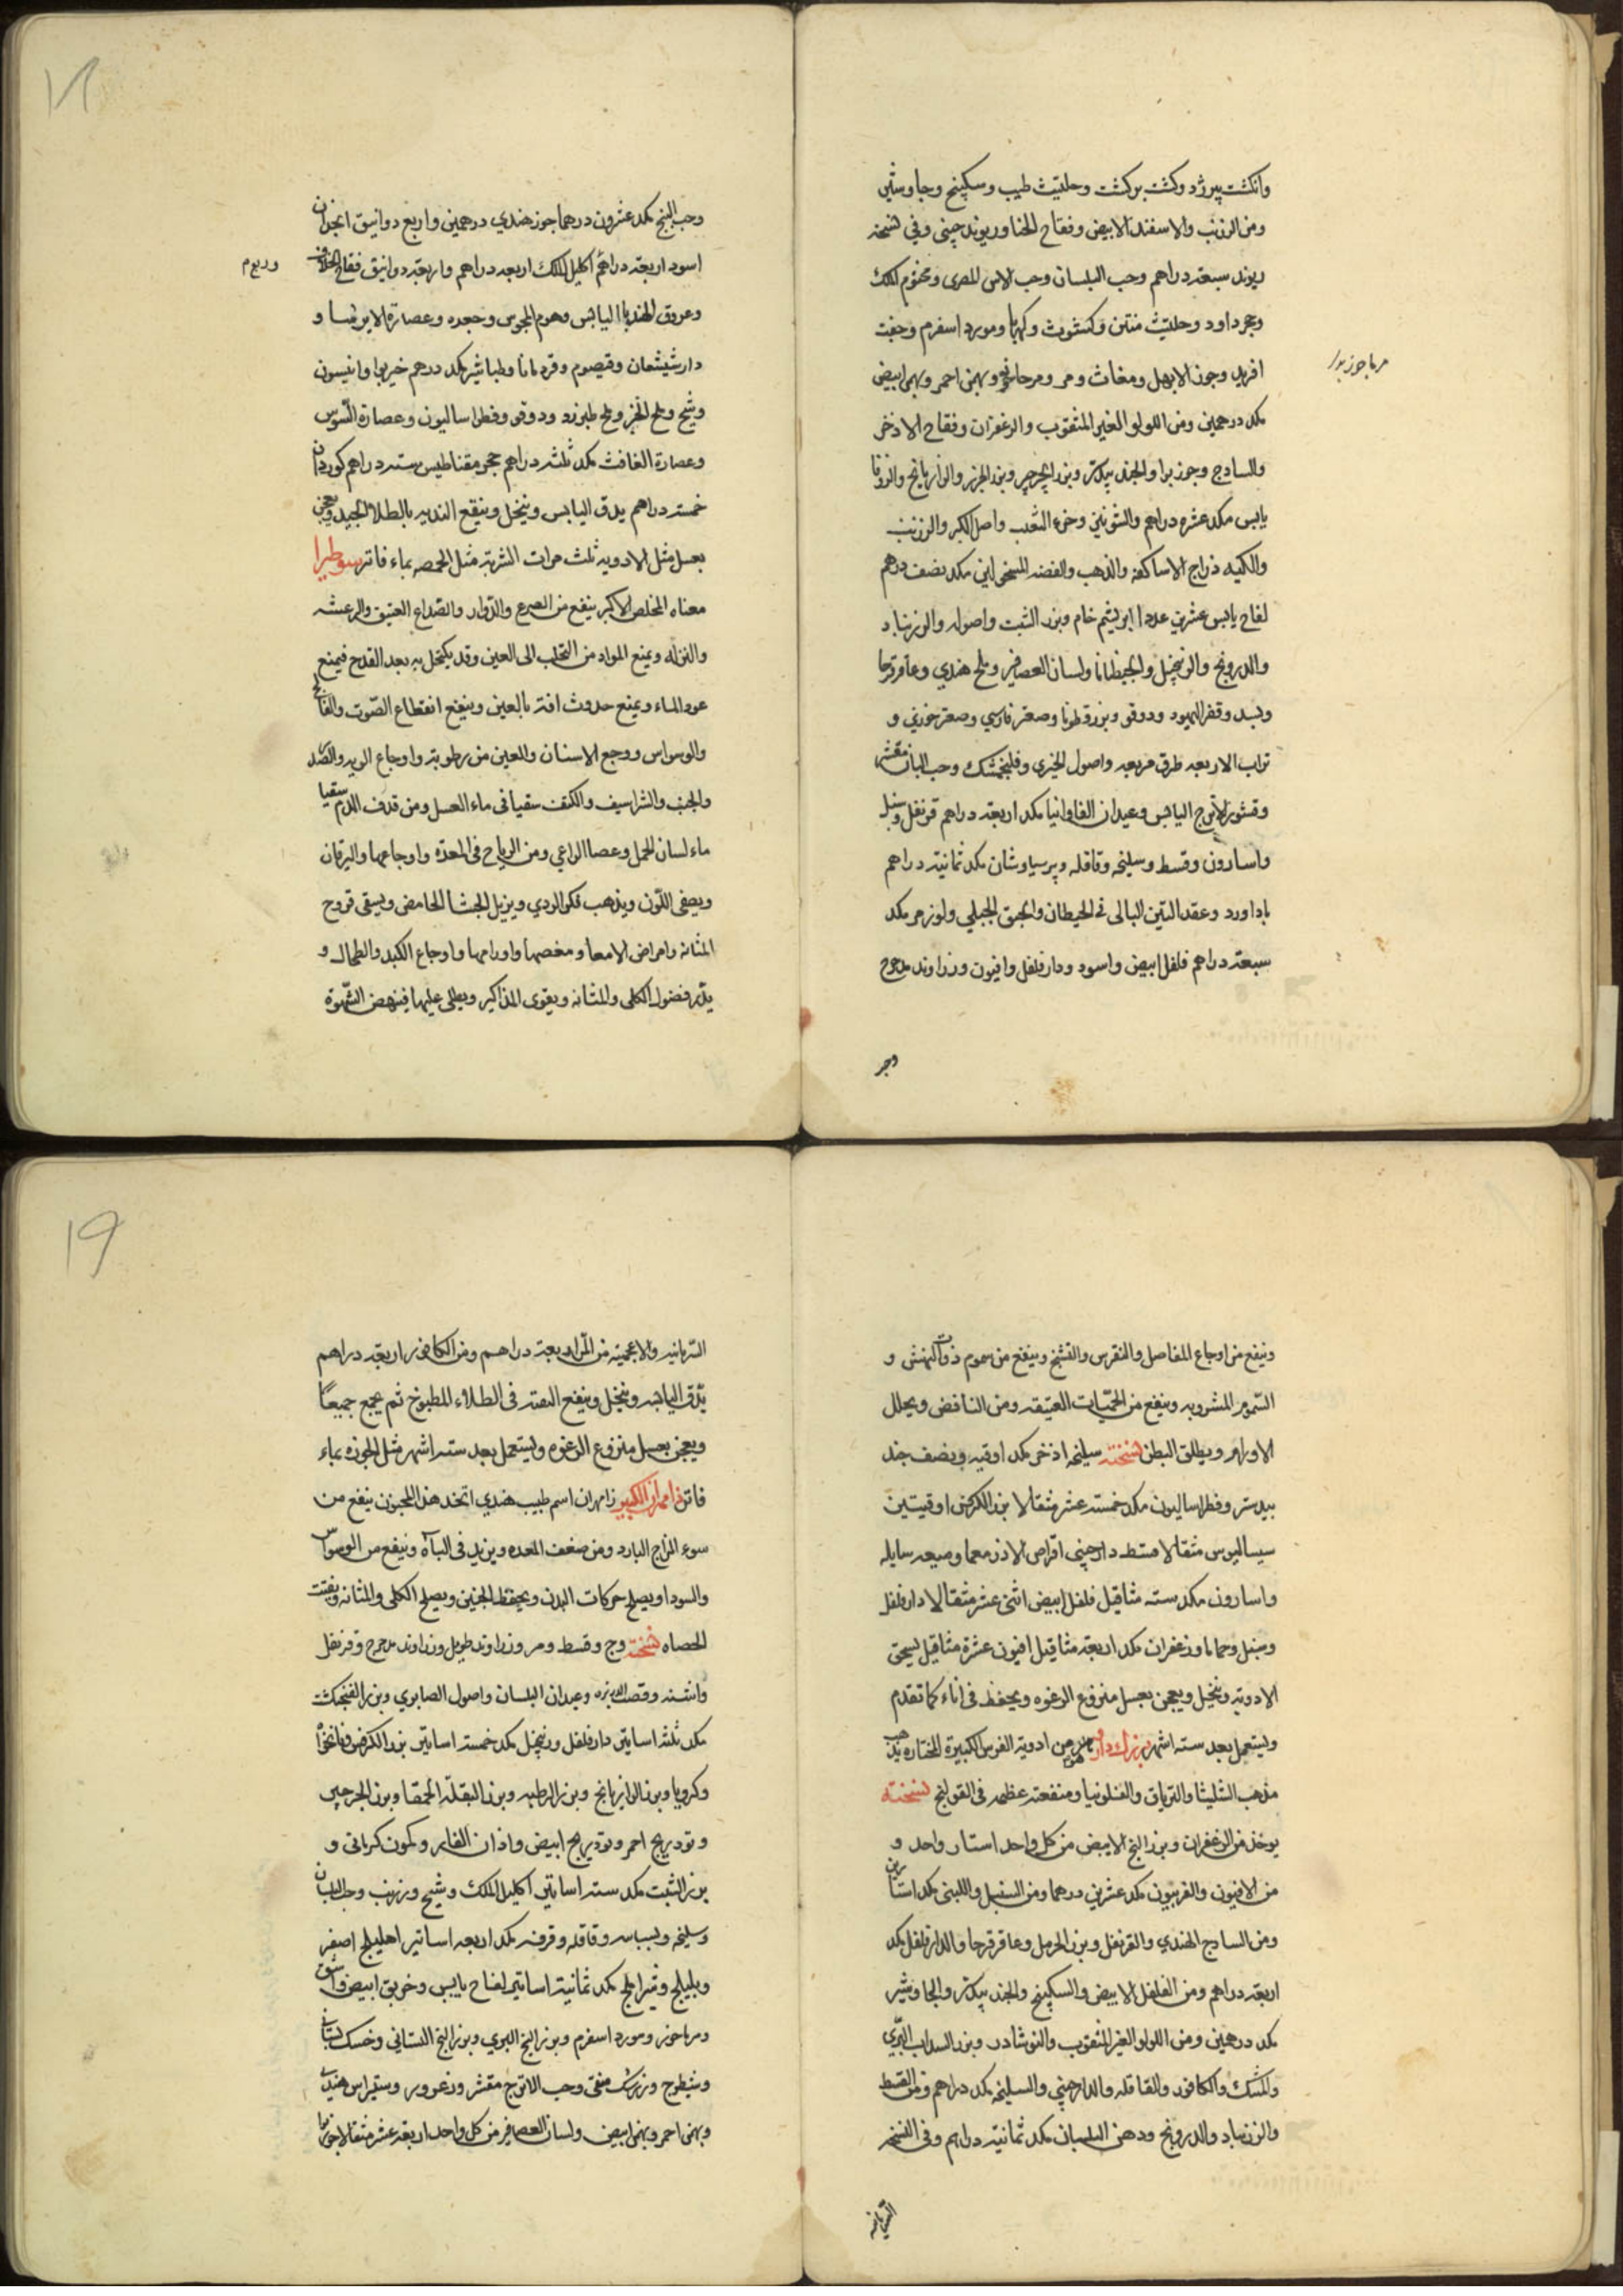 وانكشت پيرزد وكشت بركشت وحلتيت طيب وسكپنج وجاوشير
ومن الزرنب والاسفند الابيض وفقاح الحنا وريوند چيني وفي نسخة
ريوند سبعة دراهم وحب البلسان وحب الاس المصرى ومختوم الملك
وحجر داود وحلتيت منتن وكشوث وكهربا ومورد اسفرم وجفت
افريد وجوز الابهل ومغاث ومر ومرماحوز وبهمن احمر وبهمن ابيض
مرماجوز بدل
مكد درهمين ومن اللولو الغير المثقوب والزعفران وفقاح الاذخر
والساذج وجوزبوا والجند بيدستر وبزر الجرجير وبزر الجزر والرازيانج والزوفا
يابس مكد عشره دراهم والشونيز وخرء الثعلب واصل الكبر والزرنب
والكيه ذراج الاساكفه والذهب والفضه المسحولين مكد نصف درهم
لفاح يابس عشرين عددا ابريشم خام وبزر الشبت واصوله والزرنباد
والدرونج والزنجبيل والجنطيانا ولسان العصافير وملح هندي وعاقرقرحا
وبسد وقفر اليهود ودوقو وبزرقطونا وصعتر فارسي وصعتر خوزي و
تراب الاربعه طرق مربعه واصول الخيري وفلنجمشك وحب البان مقشر
وقشور الاترج اليابس وعيدان الفاوانيا مكد اربعة دراهم قرنفل وسنبل
واسارون وقسط وسليخه وقاقله وبرسياوشان مكد ثمانية دراهم
باداورد وعقد التين البالى فى الحيطان والحبق الجبلي ولوز مر مكد
سبعة دراهم فلفل ابيض واسود ودارفلفل وافيون وزراوند مدحرج
وحب
وحب البنج مكد عشرون درهما جوز هندي درهمين واربع دوانيق انجدان
اسود اربعة دراهم اكليل الملك اربعه دراهم واربعة دوانيق فقاح الخلاف
وعروق الهندبا اليابس وهوم المجوس وجعده وعصارة الايرنسا و
دارشيشعان وقيصوم وقردمانا وطباشير مكد درهم خيربوا وانيسون
وشيح وملح الخبز وملح طبرزد ودوقو وفطراساليون وعصارة السوس
وعصارة الغافث مكد ثلثه دراهم حجر مقناطيس سته دراهم كوردان
خمسة دراهم يدق اليابس وينخل وينقع الندبه بالطلا الجيد ويعجن
بعسل مثل الادويه ثلث مرات الشربة مثل الحمصه بماء فاتر سوطيرا
معناه المخلص الاكبر ينفع من الصرع والدوار والصداع العتيق والرعشه
والنزله ويمنع المواد من التحلب الى العين وقد يكتحل به بعد القدح فيمنع
عود الماء ويمنع حدوث افة بالعين وينفع انقطاع الصوت والفالج
والوسواس ووجع الاسنان والعين من رطوبة واوجاع الريه والصدر
والجنب والشراسيف والكتف سقيا فى ماء العسل ومن قذف الدم سقيا
ماء لسان الحمل وعصا الراعي ومن الرياح فى المعده واوجاعها واليرقان
ويصفى اللون ويذهب فكر الردي ويزيل الجشا الحامض ويسقى قروح
المثانه وامراض الامعا ومغصها واورامها واوجاع الكبد والطحال و
يدر فضول الكلى والمثانه ويقوى المذاكير ويطلى عليها فينهض الشهوة
وينفع من اوجاع المفاصل والنقرس والتشنج وينفع من سموم ذوات النهش و
السموم المشروبه وينفع من الحميات العتيقه ومن النافض ويحلل
الاورام ويطلق البطن نسخته سليخه اذخر مكد اوقيه ونصف جند
بيدستر وفطراساليون مكد خمسة عشر مثقالا بزر الكرفس اوقيتين
سيساليوس مثقالا قسط دارچيني اقراص الاندرمعما وميعه سايله
واسارون مكد سته مثاقيل فلفل ابيض اثنى عشر مثقالا دارفلفل
وسنبل وحماما وزعفران مكد اربعة مثاقيل افيون عشرة مثاقيل يسحق
الادوية وينخل ويعجن بعسل منزوع الرغوه ويحفظ فى اناء كما تقدم
وليستعمل بعد سته اشهر بزرك دارو هو من ادوية الفرس الكبيرة المختاره يذهب
مذهب الشليثا والترياق والفلونيا ومنفعته عظيمه فى القولنج نسخته
يوخذ من الزعفران وبزر البنج الابيض من كل واحد استار واحد و
من الافيون والفربيون مكد عشرين درهما ومن السنبل واللبنى مكد استارين
ومن الساذج الهندي والقرنفل وبزر الحرمل وعاقرقرحا والدارفلفل مكد
اربعة دراهم ومن الفلفل الابيض والسكپنج والجند بيدستر والجاوشير
مكد درهمين ومن اللولو الغير المثقوب والنوشادر وبزر السداب البري
والمسك والكافور والقاقله والدارچيني والسليخه مكد دراهم ومن القسط
والزرنباد والدرونج ودهن البلسان مكد ثمانية دراهم وفى النسخه
السريانيه
السريانيه والاعجميه من المر اربعة دراهم ومن الكافور اربعة دراهم
يدق اليابسه وينخل وينقع الصمغه فى الطلاء المطبوخ ثم يجمع جميعا
ويعجن بعسل منزوع الرغوه وليستعمل بعد سته اشهر مثل الجوزه بماء
فاتر زامهران الكبير زامهران اسم طبيب هندي اتخذ هذا المعجون ينفع من
سوء المزاج البارد ومن ضعف المعده ويزيد فى الباه وينفع من الوسواس
والسودا ويصلح حركات البدن ويحفظ الجنين ويصلح الكلى والمثانه ويفتت
الحصاه نسخته وج وقسط ومر وزراوند طويل وزراوند مدحرج وقرنفل
واشنه وقصب الذريره وعيدان البلسان واصول الصابوي وبزر الفنجنكشت
مكد ثلثه اساتير دارفلفل وزنجبيل مكد خمسه اساتير بزر الكرفس ونانخواه
وكرويا وبزر الرازيانج وبزر الرطبه وبزر البقلة الحمقا وبزر الجرجير
وتوديرنج احمر وتوديرنج ابيض واذان الفار وكمون كرمانى و
بزر الشبت مكد سته اساتير اكليل الملك وشيح وزرنب وحب البلسان
وسليخه وبسباسه وقاقله وقرفه مكد اربعه اساتير اهليلج اصفر
وبليلج وشيراملج مكد ثمانية اساتير لفاح يابس وخربق ابيض واشق
ومرماحوز ومورد اسفرم وبزر البنج البري وبزر البنج البستاني وخسك بستاني
وشيطرج وزرشك منقى وحب الاترج مقشر وزعرور وستيراس هندي
وبهمن احمر وبهمن ابيض ولسان العصافير من كل واحد اربعة عشر مثقالا